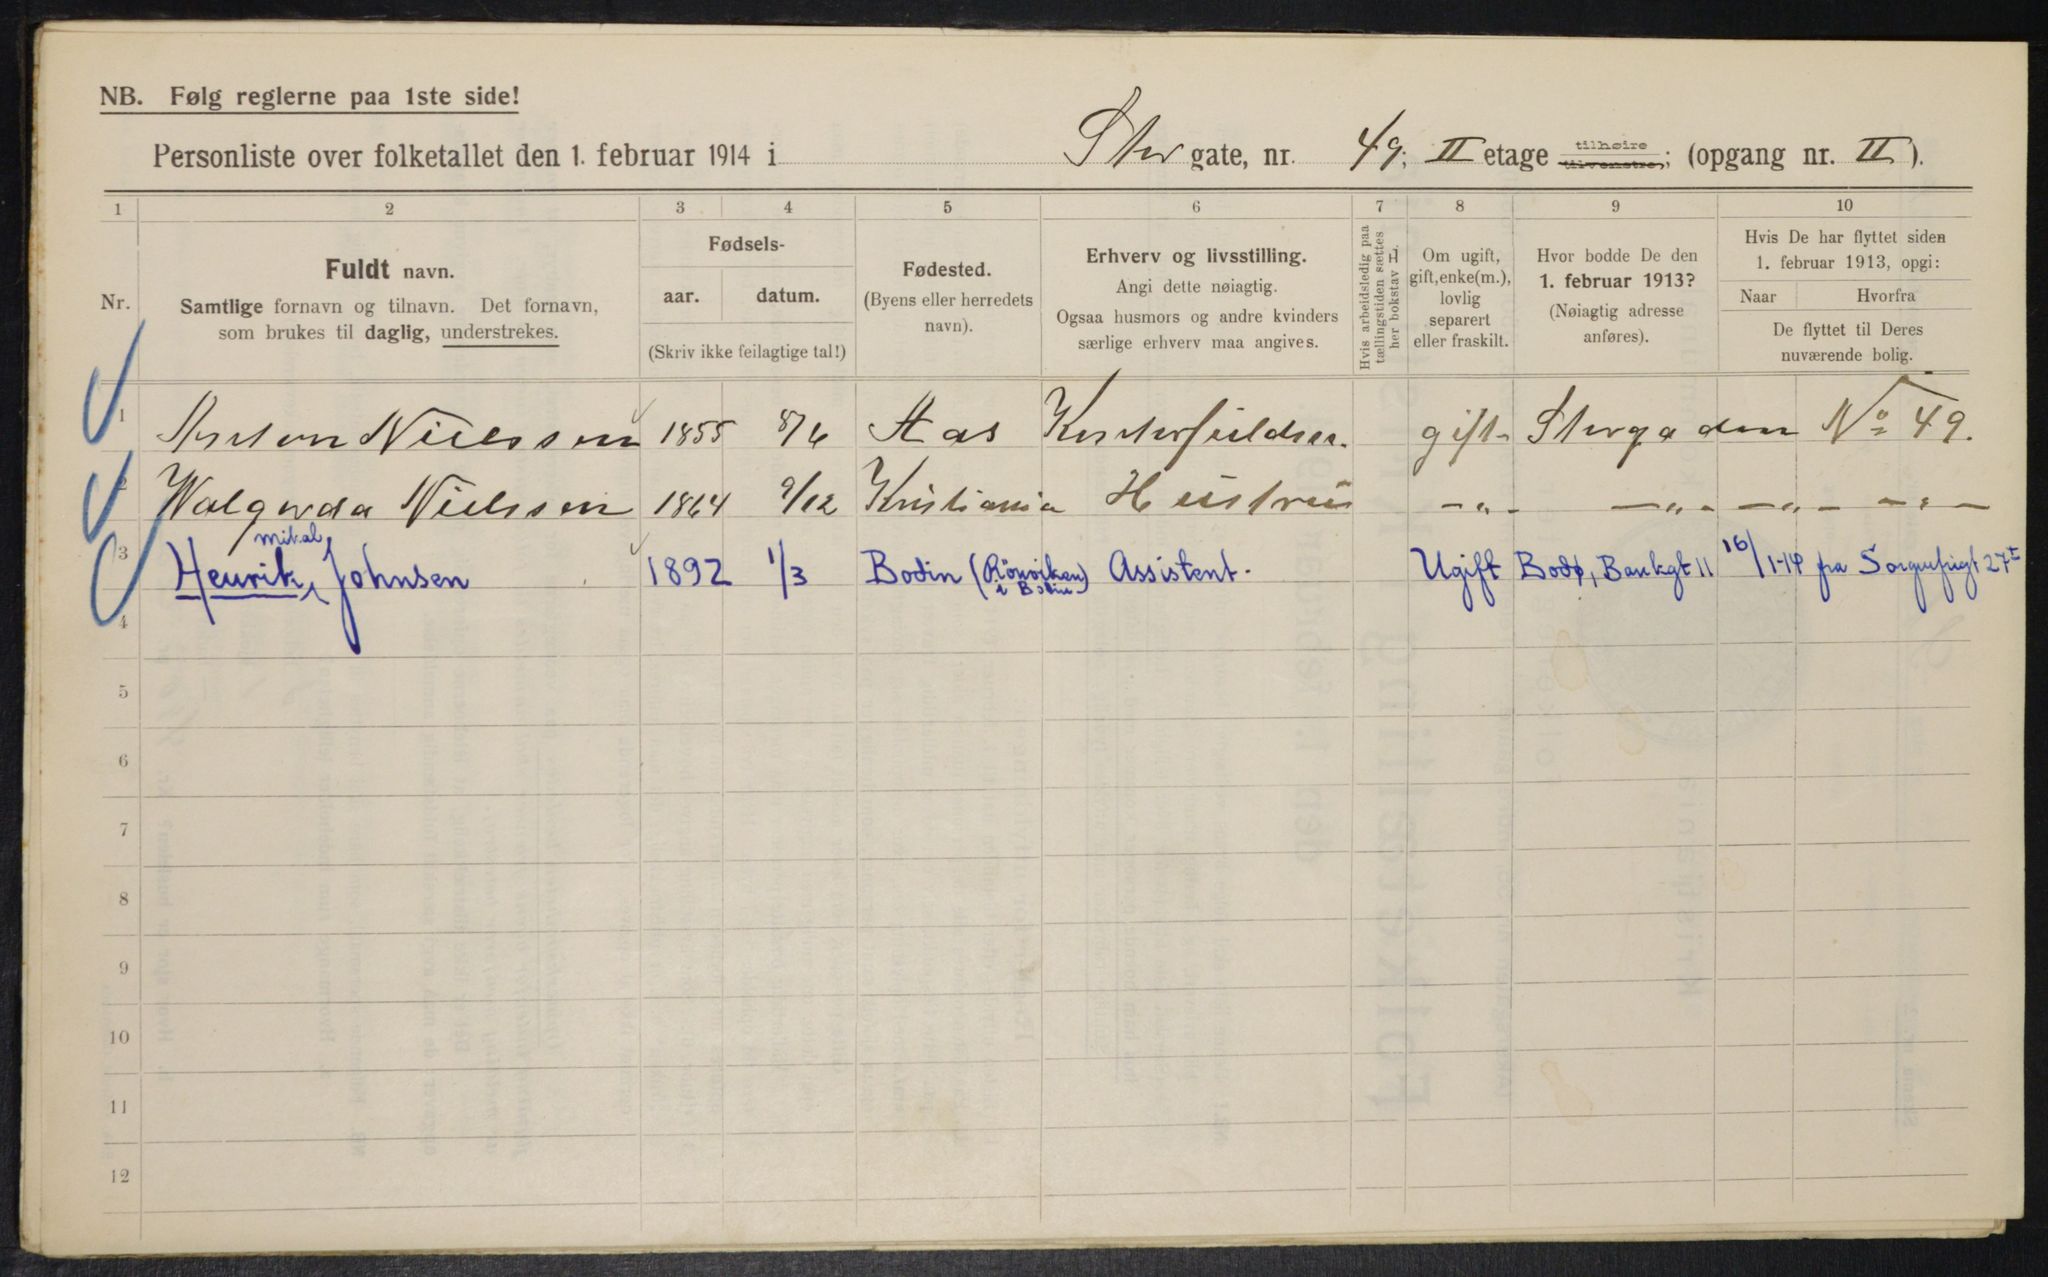 NB. Følg reglerne paa 1ste side!
Personliste over folketallet den 1. februar 1914 i gate, nr. 49; II etage tilhøire tilvenstre; (opgang nr. II).
1 2 3 4 5 6 7 8 9 10
Nr.
Fuldt navn.
Samtlige fornavn og tilnavn. Det fornavn,
som brukes til daglig, understrekes.
Fødsels-
aar. datum.
(Skriv ikke feilagtige tal!)
Fødested.
(Byens eller herredets
navn).
Erhverv og livsstilling.
Angi dette nøiagtig.
Ogsaa husmors og andre kvinders
særlige erhverv maa angives.
Hvis arbeidsledig paa
tællingstiden sættes
her bokstav L.
Om ugift,
gift, enke(m.),
lovlig
separert
eller fraskilt.
Hvor bodde De den
1. februar 1913?
(Nøiagtig adresse
anføres).
Hvis De har flyttet siden
1. februar 1913, opgi:
Naar Hvorfra
De flyttet til Deres
nuværende bolig.
1 Anton Nielssen 1855 8/6 Aas gift No 49.
2 Walgerda Nielssen 1864 9/12 Kristiania Hustru -"- -"- -"- -"-
3 Henrik Mikal Johnsen 1892 1/3 Bodin (Rönviken i Bodin) Assistent. Ugift Bodø, Bankgt 11 16/1-14 fra Sorgenfrigt 27 I
4
5
6
7
8
9
10
11
12